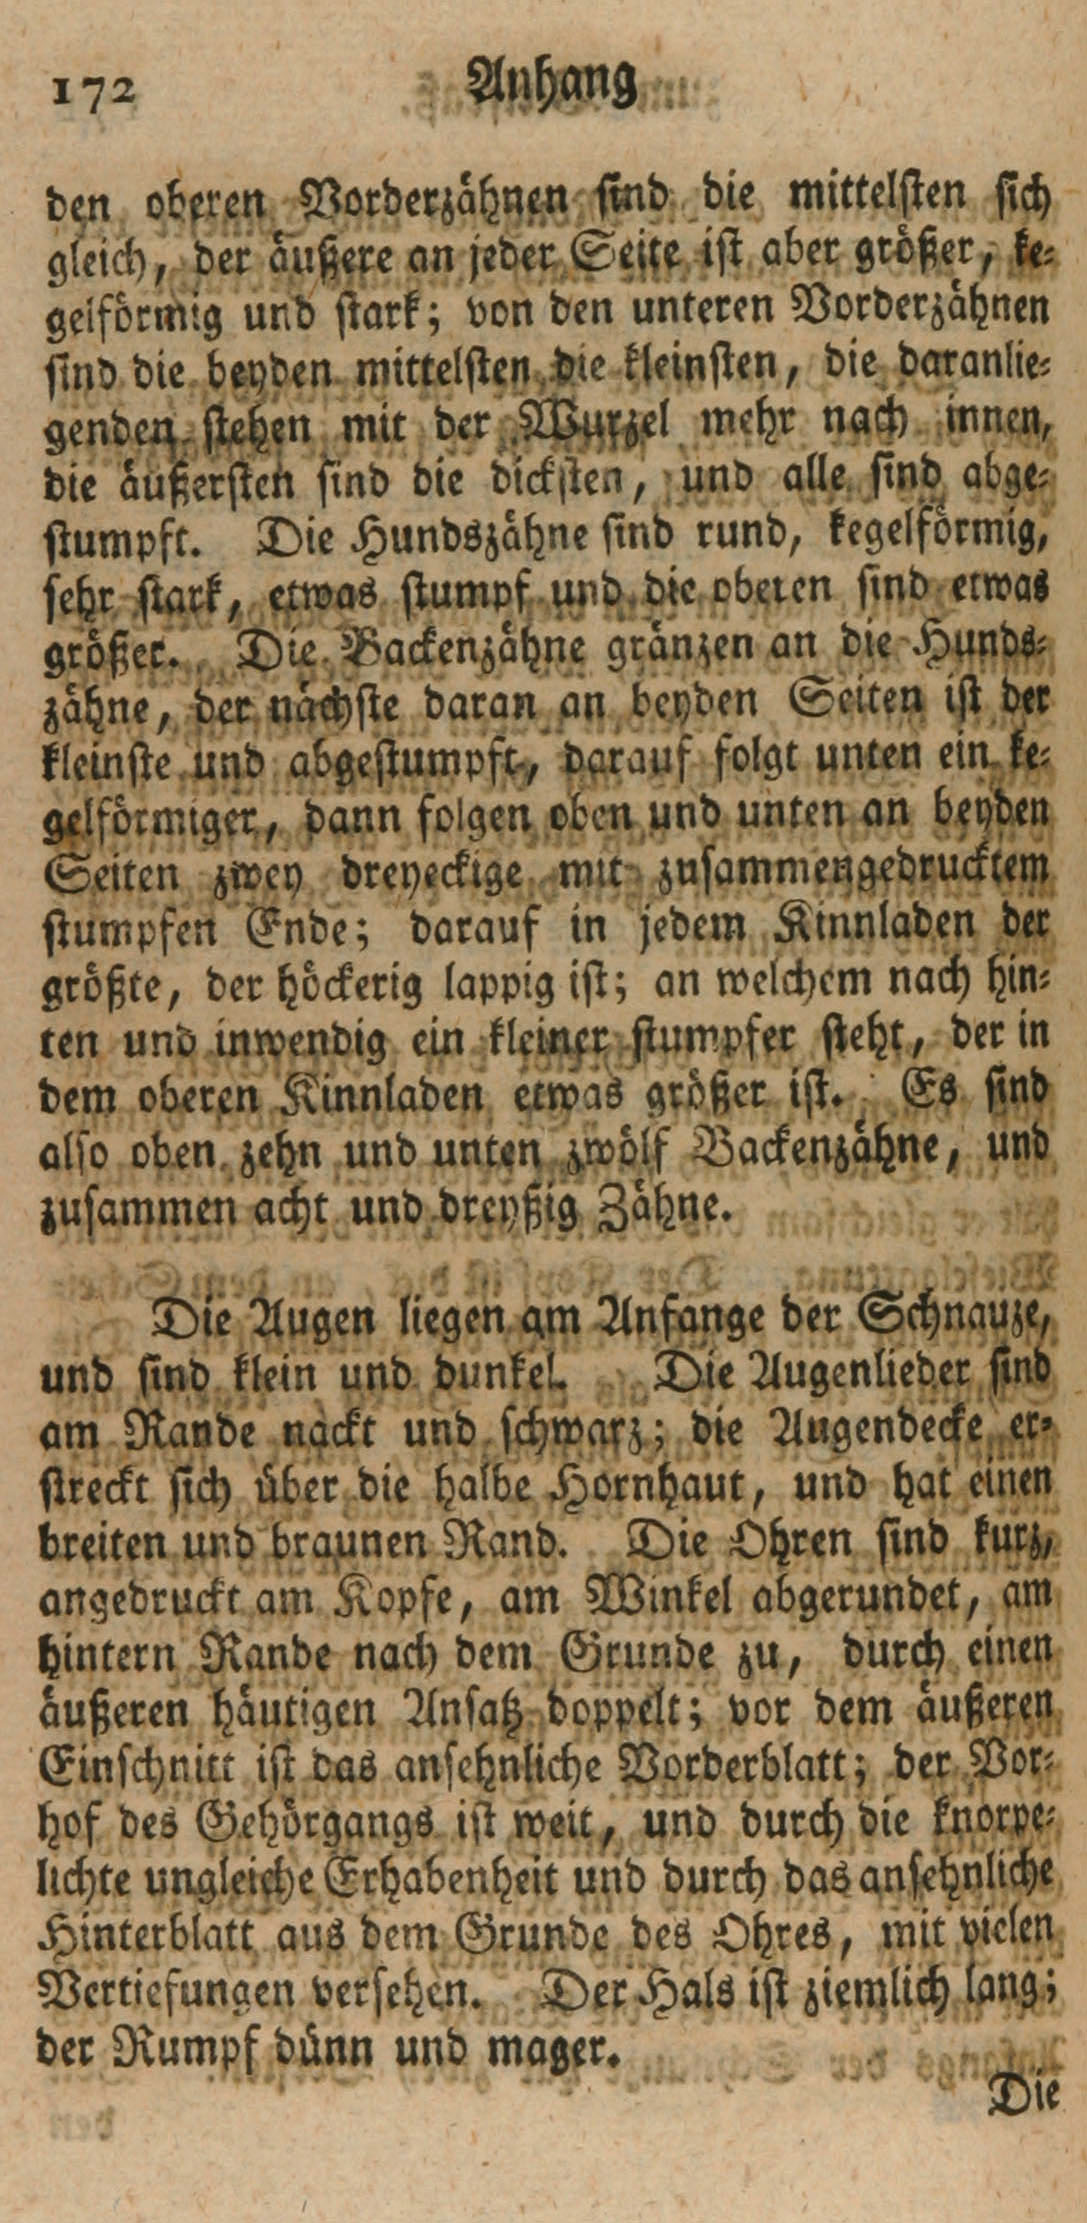 172 Anhang
den oberen Vorderzähnen sind die mittelsten sich
gleich, der äußere an jeder Seite ist aber größer, ke-
gelförmig und stark; von den unteren Vorderzähnen
sind die beyden mittelsten die kleinsten, die daranlie-
genden stehen mit der Wurzel mehr nach innen,
die äußersten sind die dicksten, und alle sind abge-
stumpft. Die Hundszähne sind rund, kegelförmig,
sehr stark, etwas stumpf und die oberen sind etwas
größer. Die Backenzähne gränzen an die Hunds-
zähne, der nächste daran an beyden Seiten ist der
kleinste und abgestumpft, darauf folgt unten ein ke-
gelförmiger, dann folgen oben und unten an beyden
Seiten zwey dreyeckige mit zusammengedrucktem
stumpfen Ende; darauf in jedem Kinnladen der
größte, der höckerig lappig ist; an welchem nach hin-
ten und inwendig ein kleiner stumpfer steht, der in
dem oberen Kinnladen etwas größer ist. Es sind
also oben zehn und unten zwölf Backenzähne, und
zusammen acht und dreyßig Zähne.
Die Augen liegen am Anfange der Schnauze,
und sind klein und dunkel. Die Augenlieder sind
am Rande nackt und schwarz; die Augendecke er-
streckt sich über die halbe Hornhaut, und hat einen
breiten und braunen Rand. Die Ohren sind kurz,
angedruckt am Kopfe, am Winkel abgerundet, am
hintern Rande nach dem Grunde zu, durch einen
äußeren häutigen Ansatz doppelt; vor dem äußeren
Einschnitt ist das ansehnliche Vorderblatt; der Vor-
hof des Gehörgangs ist weit, und durch die knorpe-
lichte ungleiche Erhabenheit und durch das ansehnliche
Hinterblatt aus dem Grunde des Ohres, mit vielen
Vertiefungen versehen. Der Hals ist ziemlich lang;
der Rumpf dünn und mager.
Die